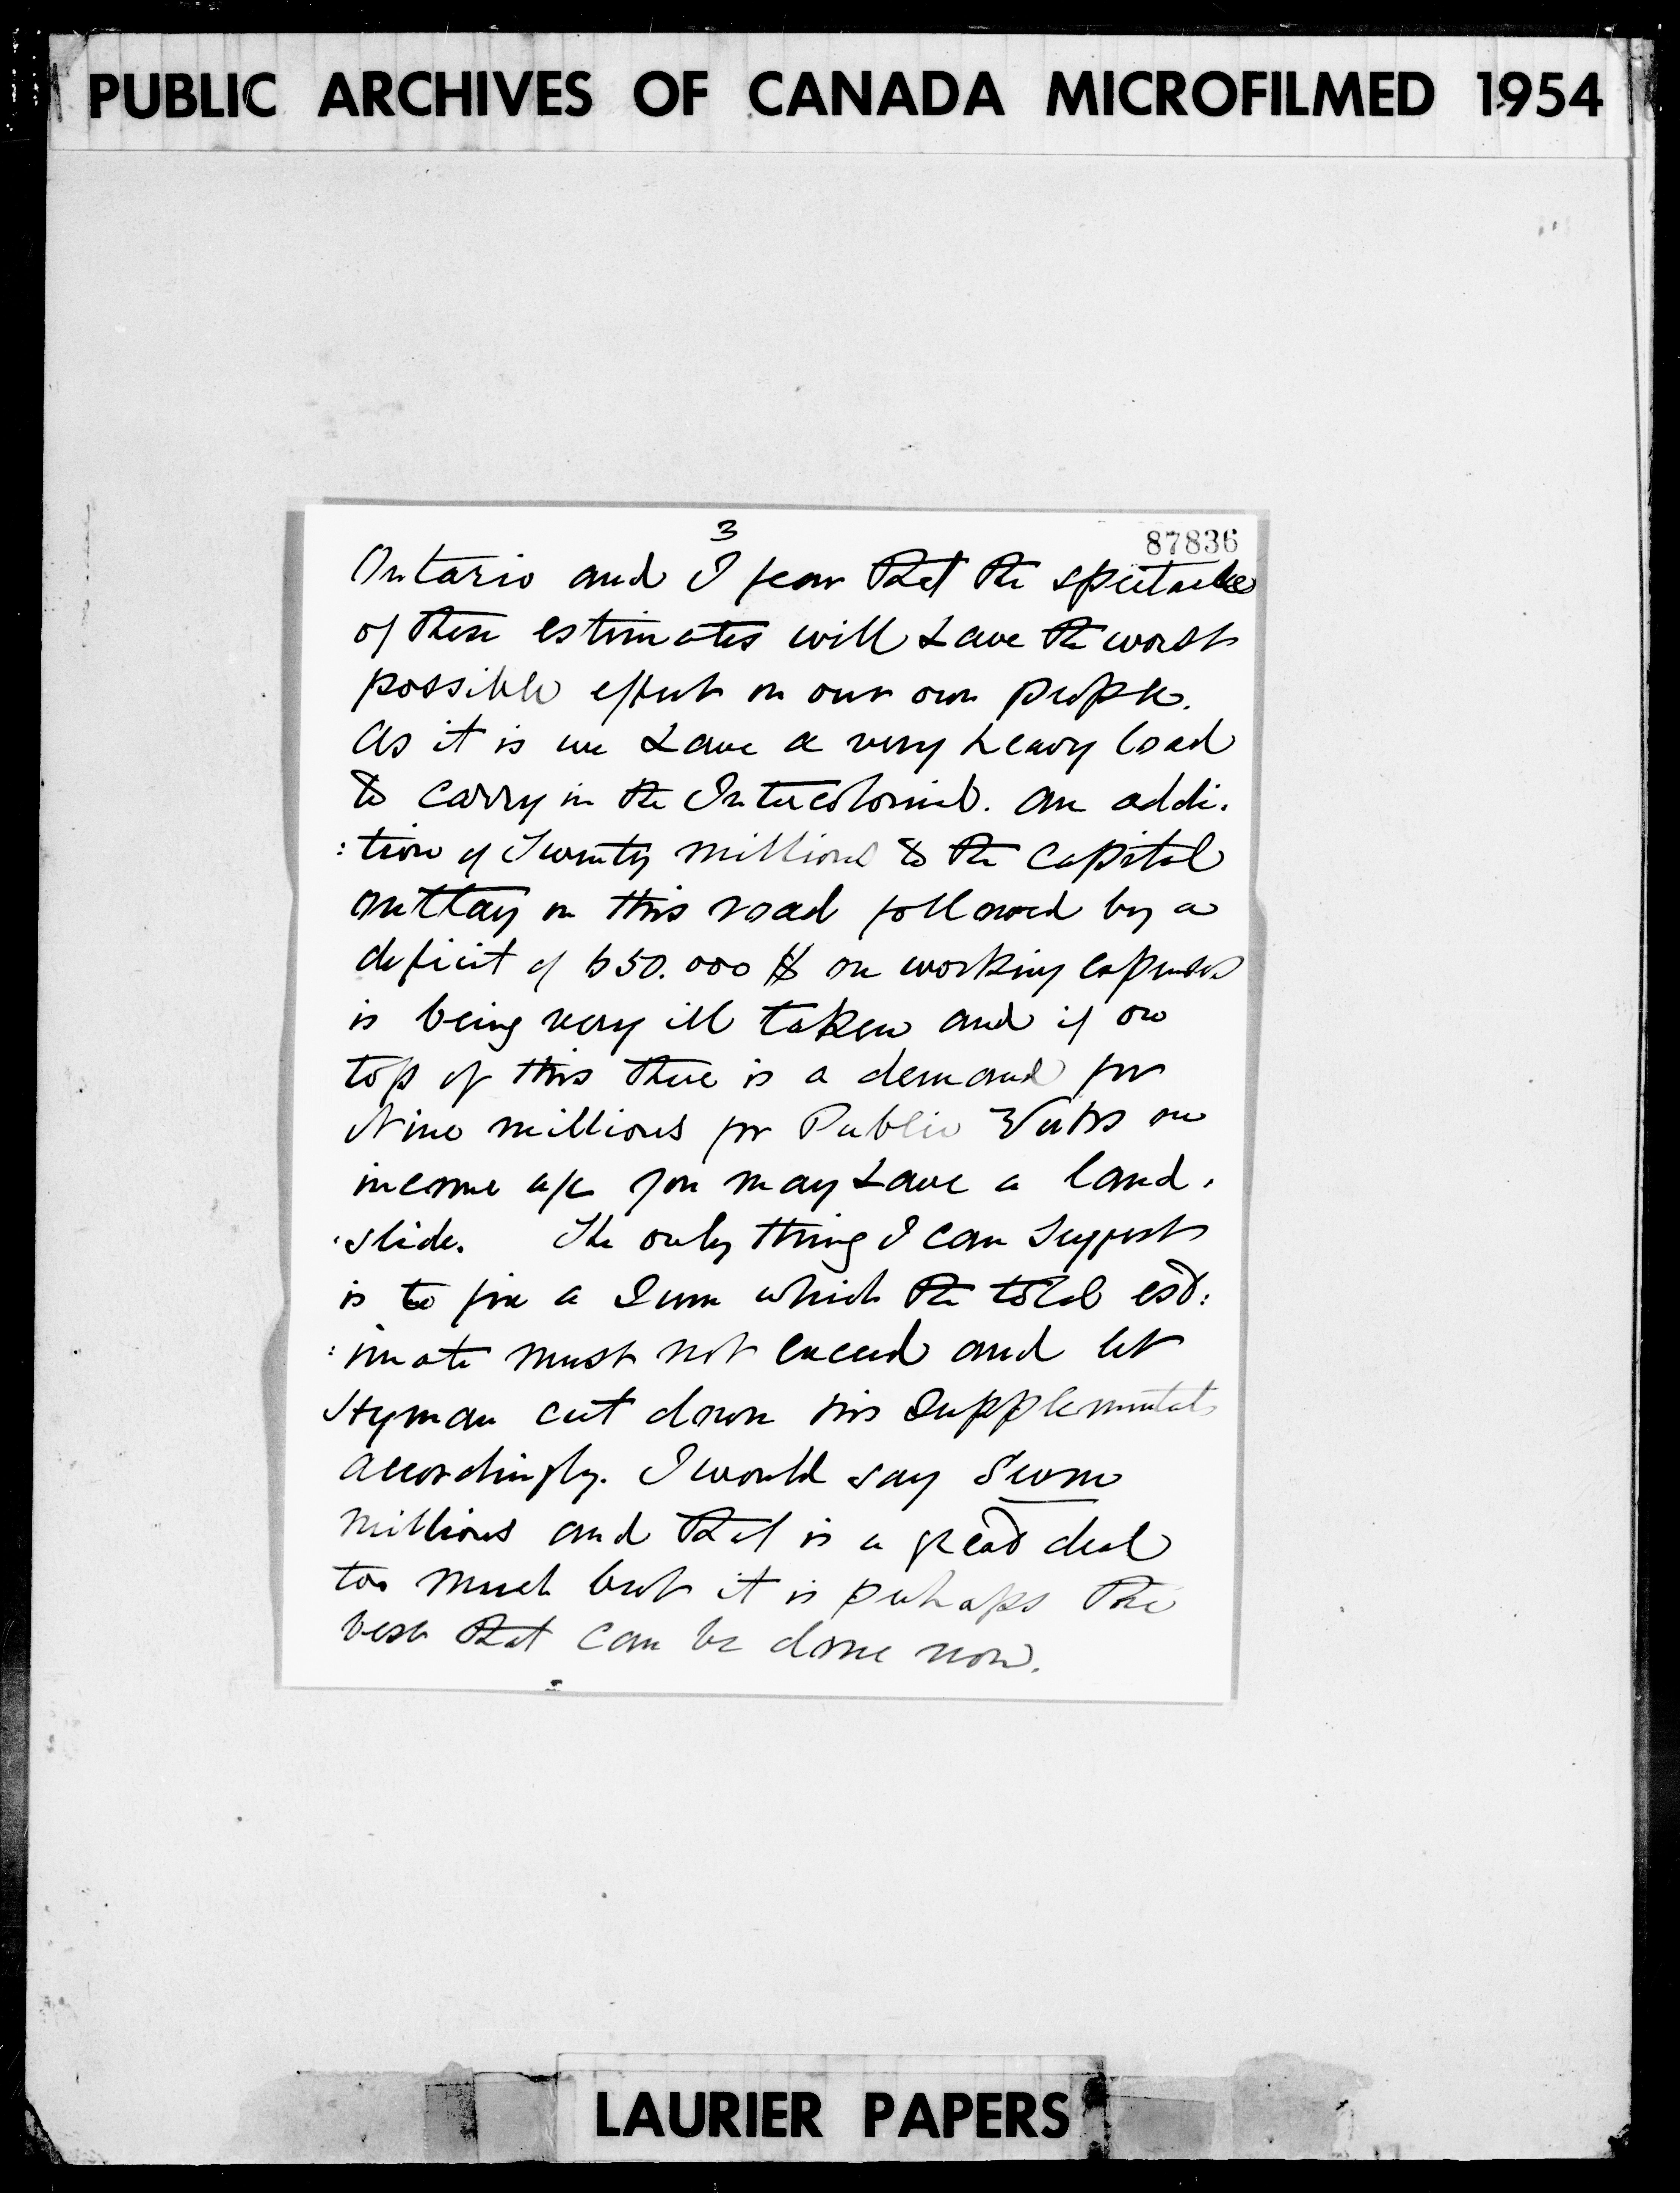 PUBLIC ARCHIVES OF CANADA MICROFILMED 1954
3
87836
Ontario and I fear that the spectacle
of these estimates will have the worst
possible effect on our own people.
As it is we have a very heavy load
to carry in the Intercolonial. An addi-
:tion of Twenty millions to the Capital
outlay on this road followed by a
deficit of 650.000 $ on working expenses
is being very ill taken and if on
top of this there is a demand for
Nine millions for Public Works on
income a/c you may have a land-
slide. The only thing I can suggest
is to fix a sum which the total est:
:imate must not exceed and let
Hyman cut down his Supplementals
accordingly. I would say Seven
millions and that is a great deal
too much but it is perhaps the
best that can be done now.
LAURIER PAPERS